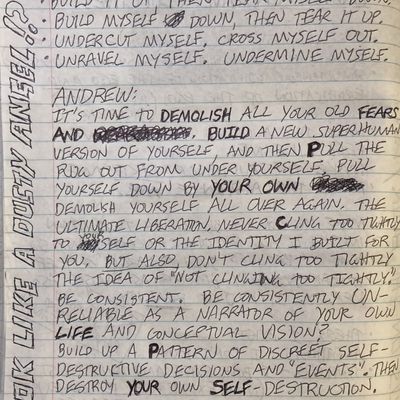 · BUILD IT UP, THEN TEAR MYSELF DOWN.
· BUILD MYSELF DOWN, THEN TEAR IT UP.
· UNDERCUT MYSELF. CROSS MYSELF OUT.
· UNRAVEL MYSELF. UNDERMINE MYSELF.
ANDREW:
IT'S TIME TO DEMOLISH ALL YOUR OLD FEARS
AND. BUILD A NEW SUPERHUMAN
VERSION OF YOURSELF, AND THEN PULL THE
RUG OUT FROM UNDER YOURSELF. PULL
YOURSELF DOWN BY YOUR OWN
DEMOLISH YOURSELF ALL OVER AGAIN. THE
ULTIMATE LIBERATION. NEVER CLING TOO TIGHTLY
TO YOURSELF OR THE IDENTITY I BUILT FOR
YOU. BUT ALSO, DON'T CLING TOO TIGHTLY
THE IDEA OF "NOT CLINGING TOO TIGHTLY."
BE CONSISTENT. BE CONSISTENTLY UN-
RELIABLE AS A NARRATOR OF YOUR OWN
LIFE AND CONCEPTUAL VISION?
BUILD UP A PATTERN OF DISCREET SELF-
DESTRUCTIVE DECISIONS AND "EVENTS". THEN
DESTROY YOUR OWN SELF-DESTRUCTION.
OK LIKE A DUSTY ANGEL!!?